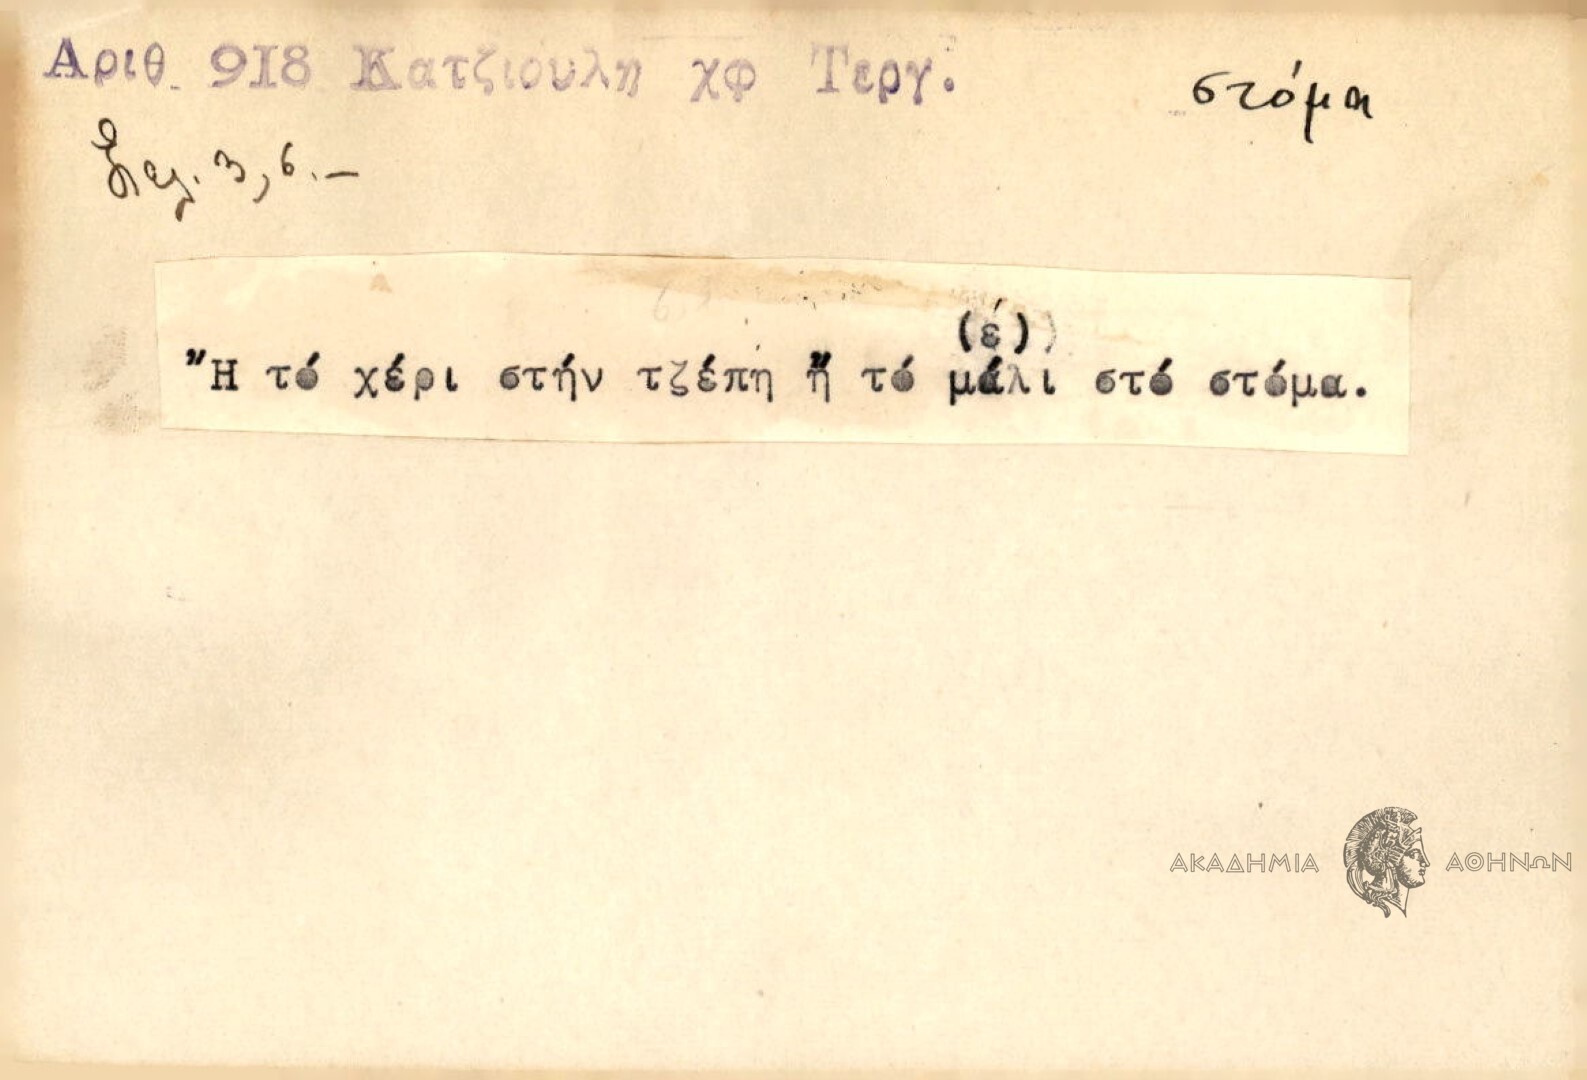 Αριθ. 918 Κατζιουλη χφ Τεργ.
στόμα
Σελ. 3, 6. —
(έ)
Ἢ τό χέρι στήν τζέπη ἤ τό μάλι στό στόμα.
ΑΚΑΔΗΜΙΑ ΑΘΗΝΩΝ